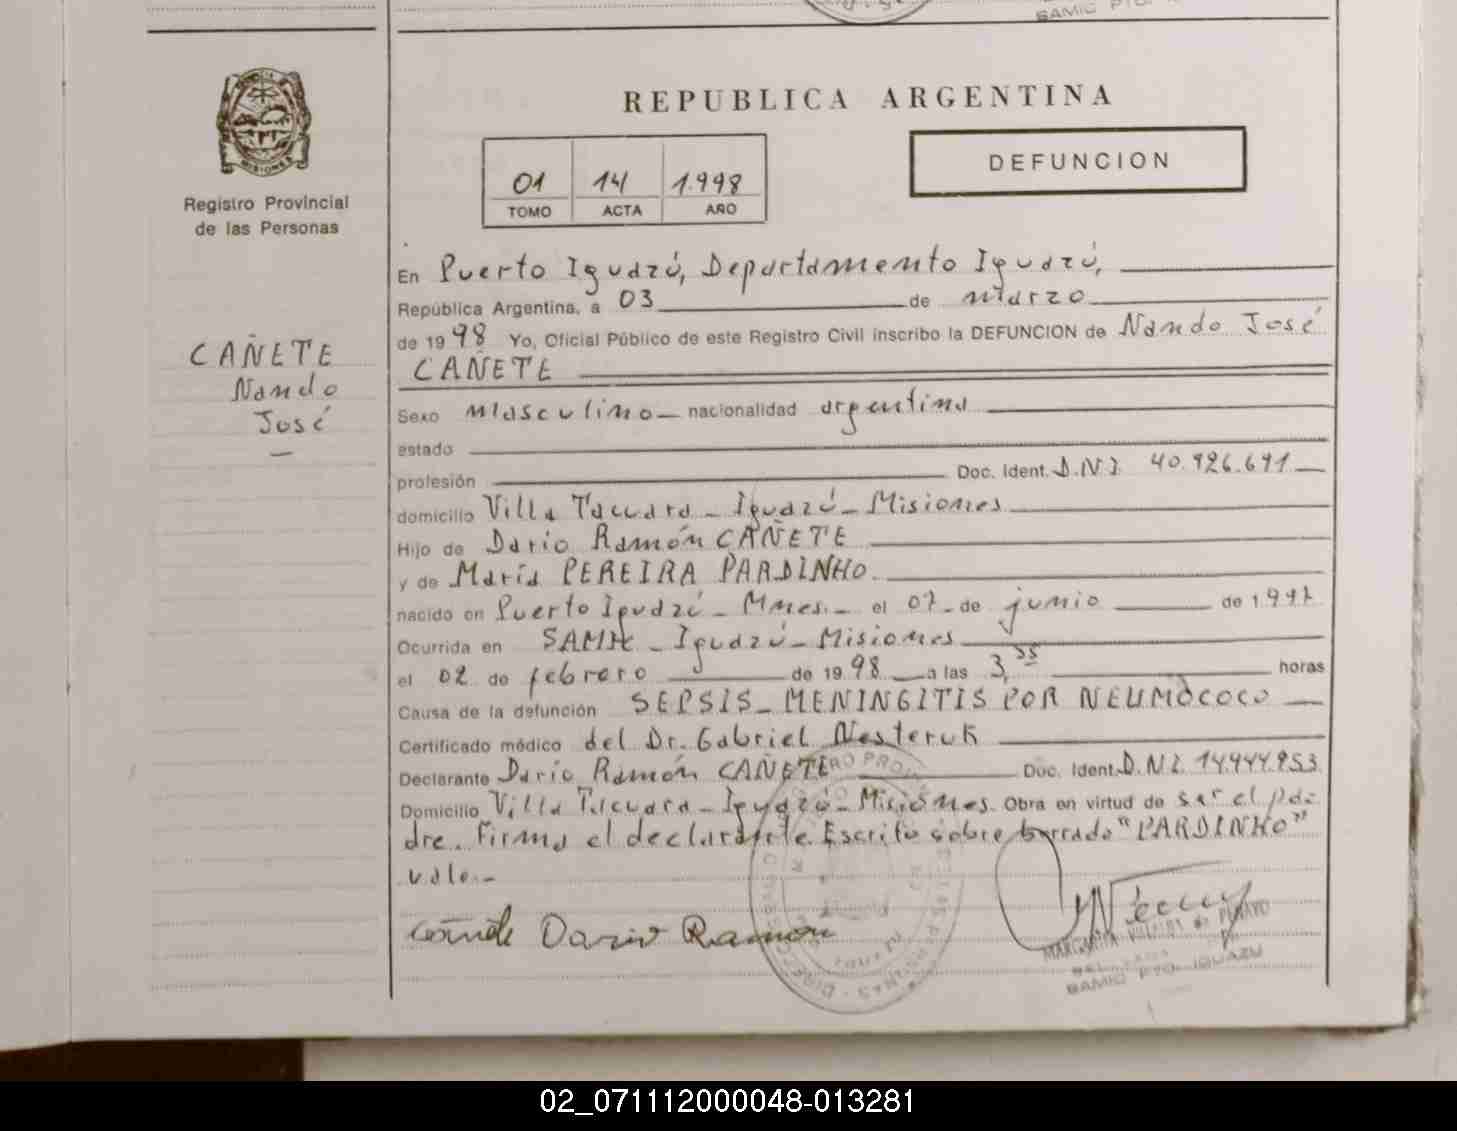 SAMIC PTO.
MISIONES
Registro Provincial
de las Personas
CAÑETE
Nando
José
REPUBLICA ARGENTINA
01 14 1.998
TOMO ACTA AÑO
DEFUNCION
En Puerto Iguazú, Departamento Iguazú,
República Argentina, a 03 de marzo
de 1998 Yo, Oficial Público de este Registro Civil inscribo la DEFUNCION de Nando José
CAÑETE
Sexo masculino nacionalidad argentina
estado
profesión Doc. Ident. D.N.I. 40.926.691
domicilio Villa Tacuara - Iguazú - Misiones
Hijo de Dario Ramón CAÑETE
y de María PEREIRA PARDINHO
nacido en Puerto Iguazú - Mnes. - el 07 de junio de 1.997
Ocurrida en SAMIC - Iguazú - Misiones
el 02 de febrero de 1998 a las 3,55 horas
Causa de la defunción SEPSIS - MENINGITIS POR NEUMOCOCO
Certificado médico del Dr. Gabriel Nesteruk
Declarante Dario Ramón CAÑETE Doc. Ident. D.N.I. 14.944.953
Domicilio Villa Tacuara - Iguazú - Misiones. Obra en virtud de ser el pa-
dre. Firma el declarante. Escrito sobre borrado "PARDINHO"
vale.-
Cañete Dario Ramon
MARGARITA
SAMIC PTO. IGUAZU
02_071112000048-013281